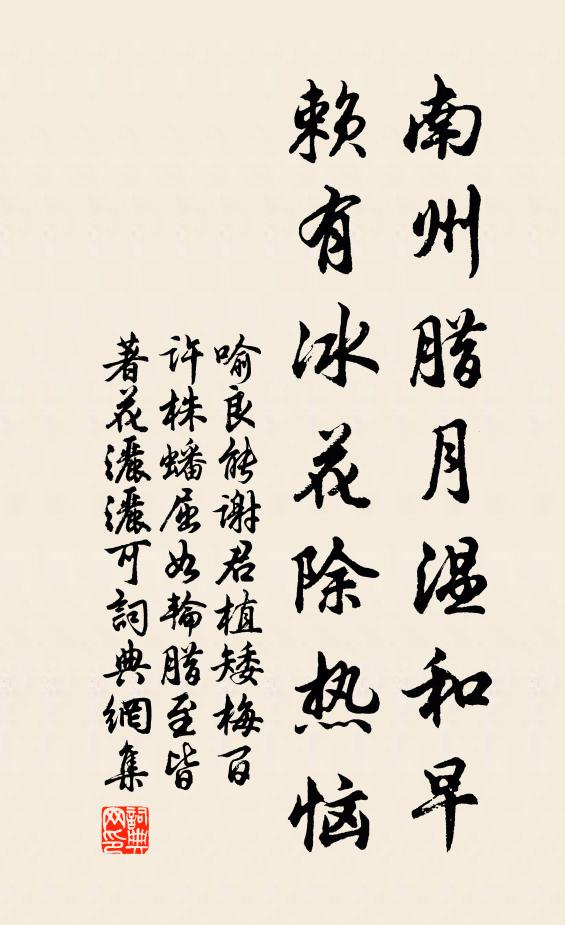 南州腊月温和早
赖有冰花除热恼
喻良能谢君植矮梅百
许株蟠屈如轮腊至皆
著花灑灑可詞典網集
詞典
网印